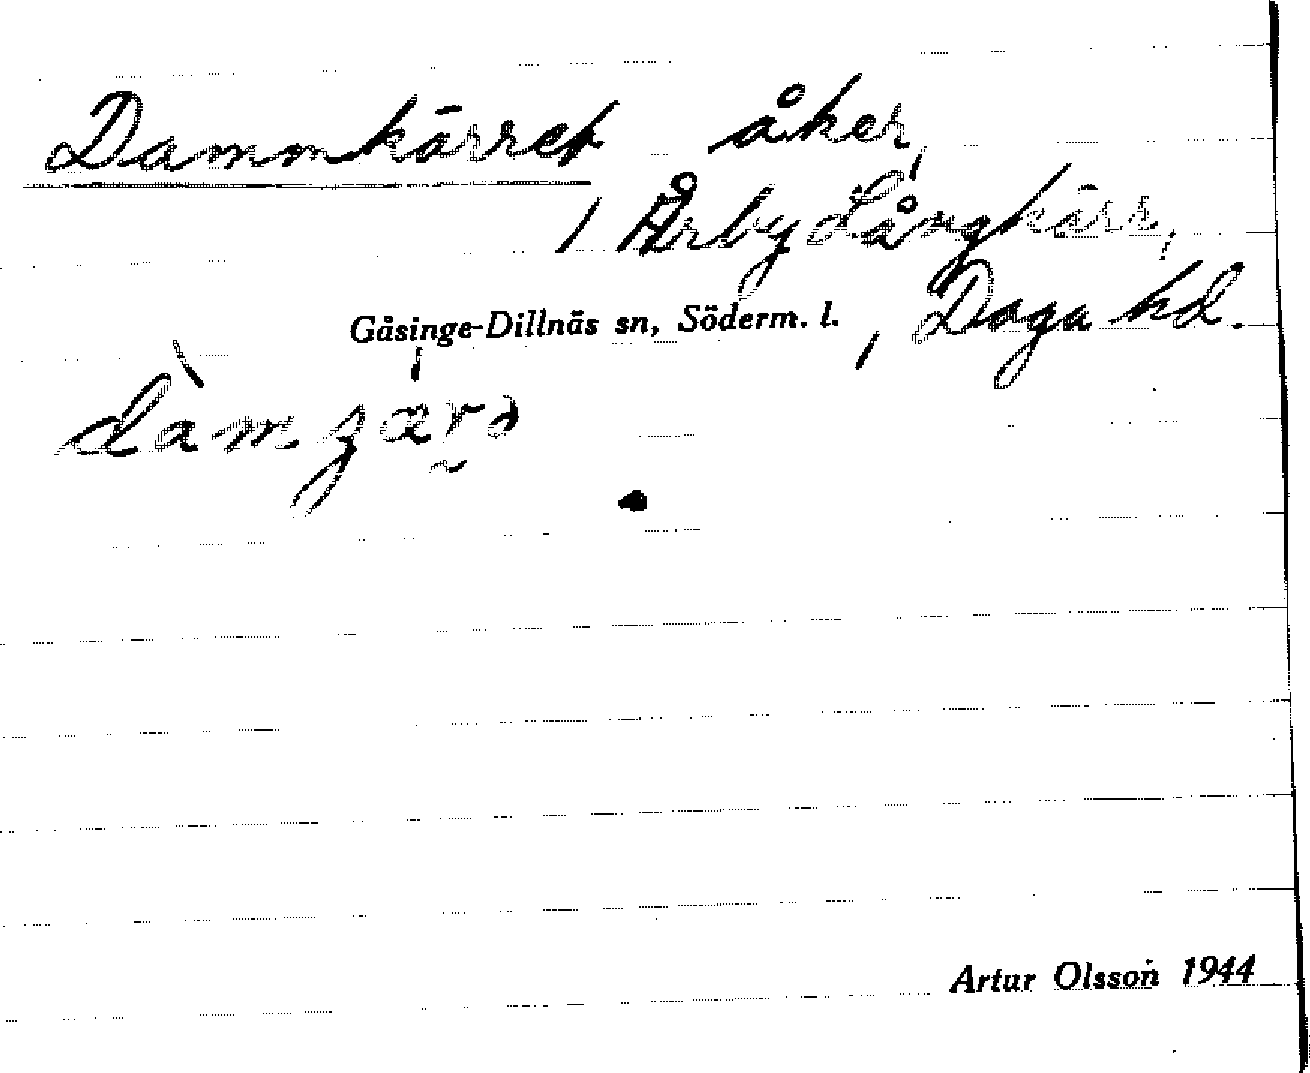 Dammkärret åker,
/ Årby Långkärr,
Gåsinge-Dillnäs sn, Söderm. l. , Daga hd.
Artur Olsson 1944